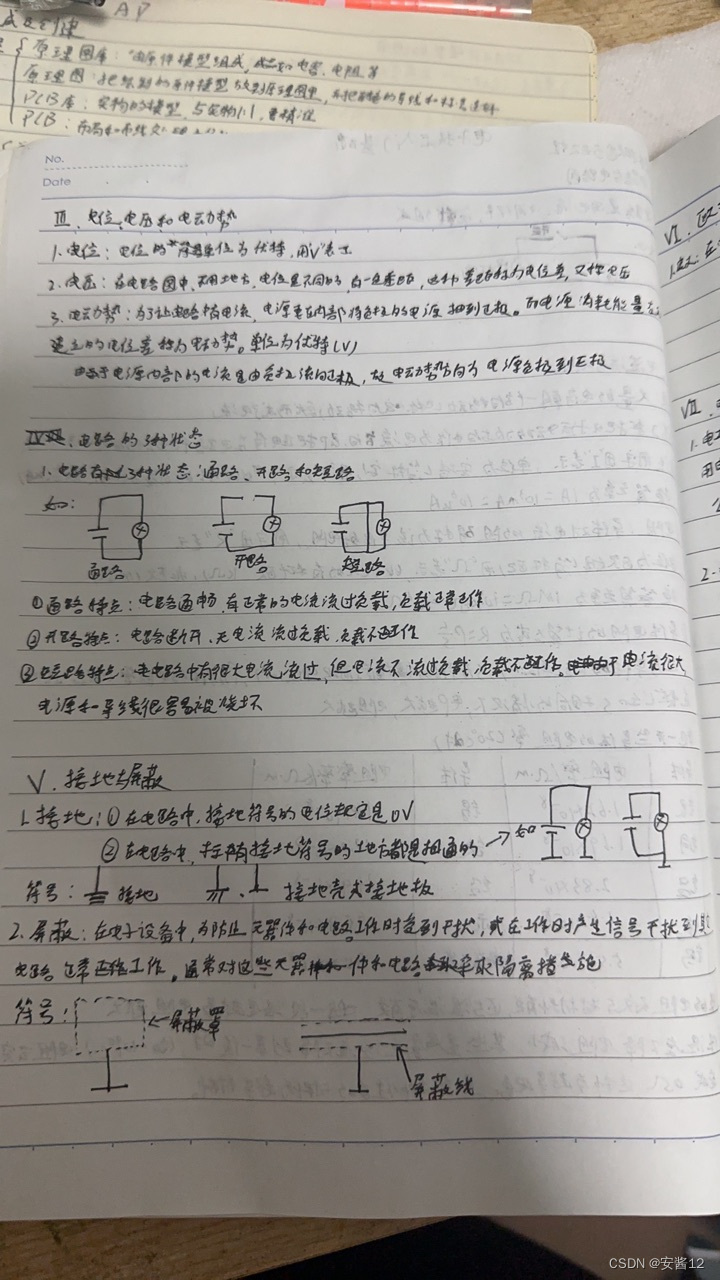 AD
原理图库：由原件模型组成，
原理图：
PCB库：实物的模型，与实物1:1，要精准
PCB：布局和布线
No.
Date
Ⅲ、电位、电压和电动势
1.电位：电位的单位为伏特，用V表示
2.电压：在电路图中，不同地方，电位是不同的，有一定差距，这种差距称为电位差，又称电压
3.电动势：为了让电路有电流，电源要在内部将负极的电源抽到正极。而电源消耗能量
建立的电位差称为电动势。单位为伏特(V)
由于电源内部的电流是由负极流向正极，故电动势方向为电源负极到正极
Ⅳ、电路的3种状态
1、电路有3种状态：通路、开路和短路
如：
通路
开路
短路
①通路特点：电路通畅，有正常的电流流过负载，负载正常工作
②开路特点：电路断开，无电流流过负载，负载不工作
③短路特点：电路中有很大电流流过，但电流不流过负载，负载不工作。由于电流很大
电源和导线很容易被烧坏
Ⅴ、接地与屏蔽
1.接地：①在电路中，接地符号的电位规定是0V
②在电路中，标有接地符号的地方都是相通的→如
符号：接地
接地壳或接地板
2.屏蔽：在电子设备中，为防止元器件和电路工作时受到干扰，或在工作时产生信号干扰到其
电路正常工作，通常对这些元器件和电路采取隔离措施
符号：
←屏蔽罩
屏蔽线
Ⅵ、
Ⅶ、
1.电
用电
2.
CSDN @安酱12